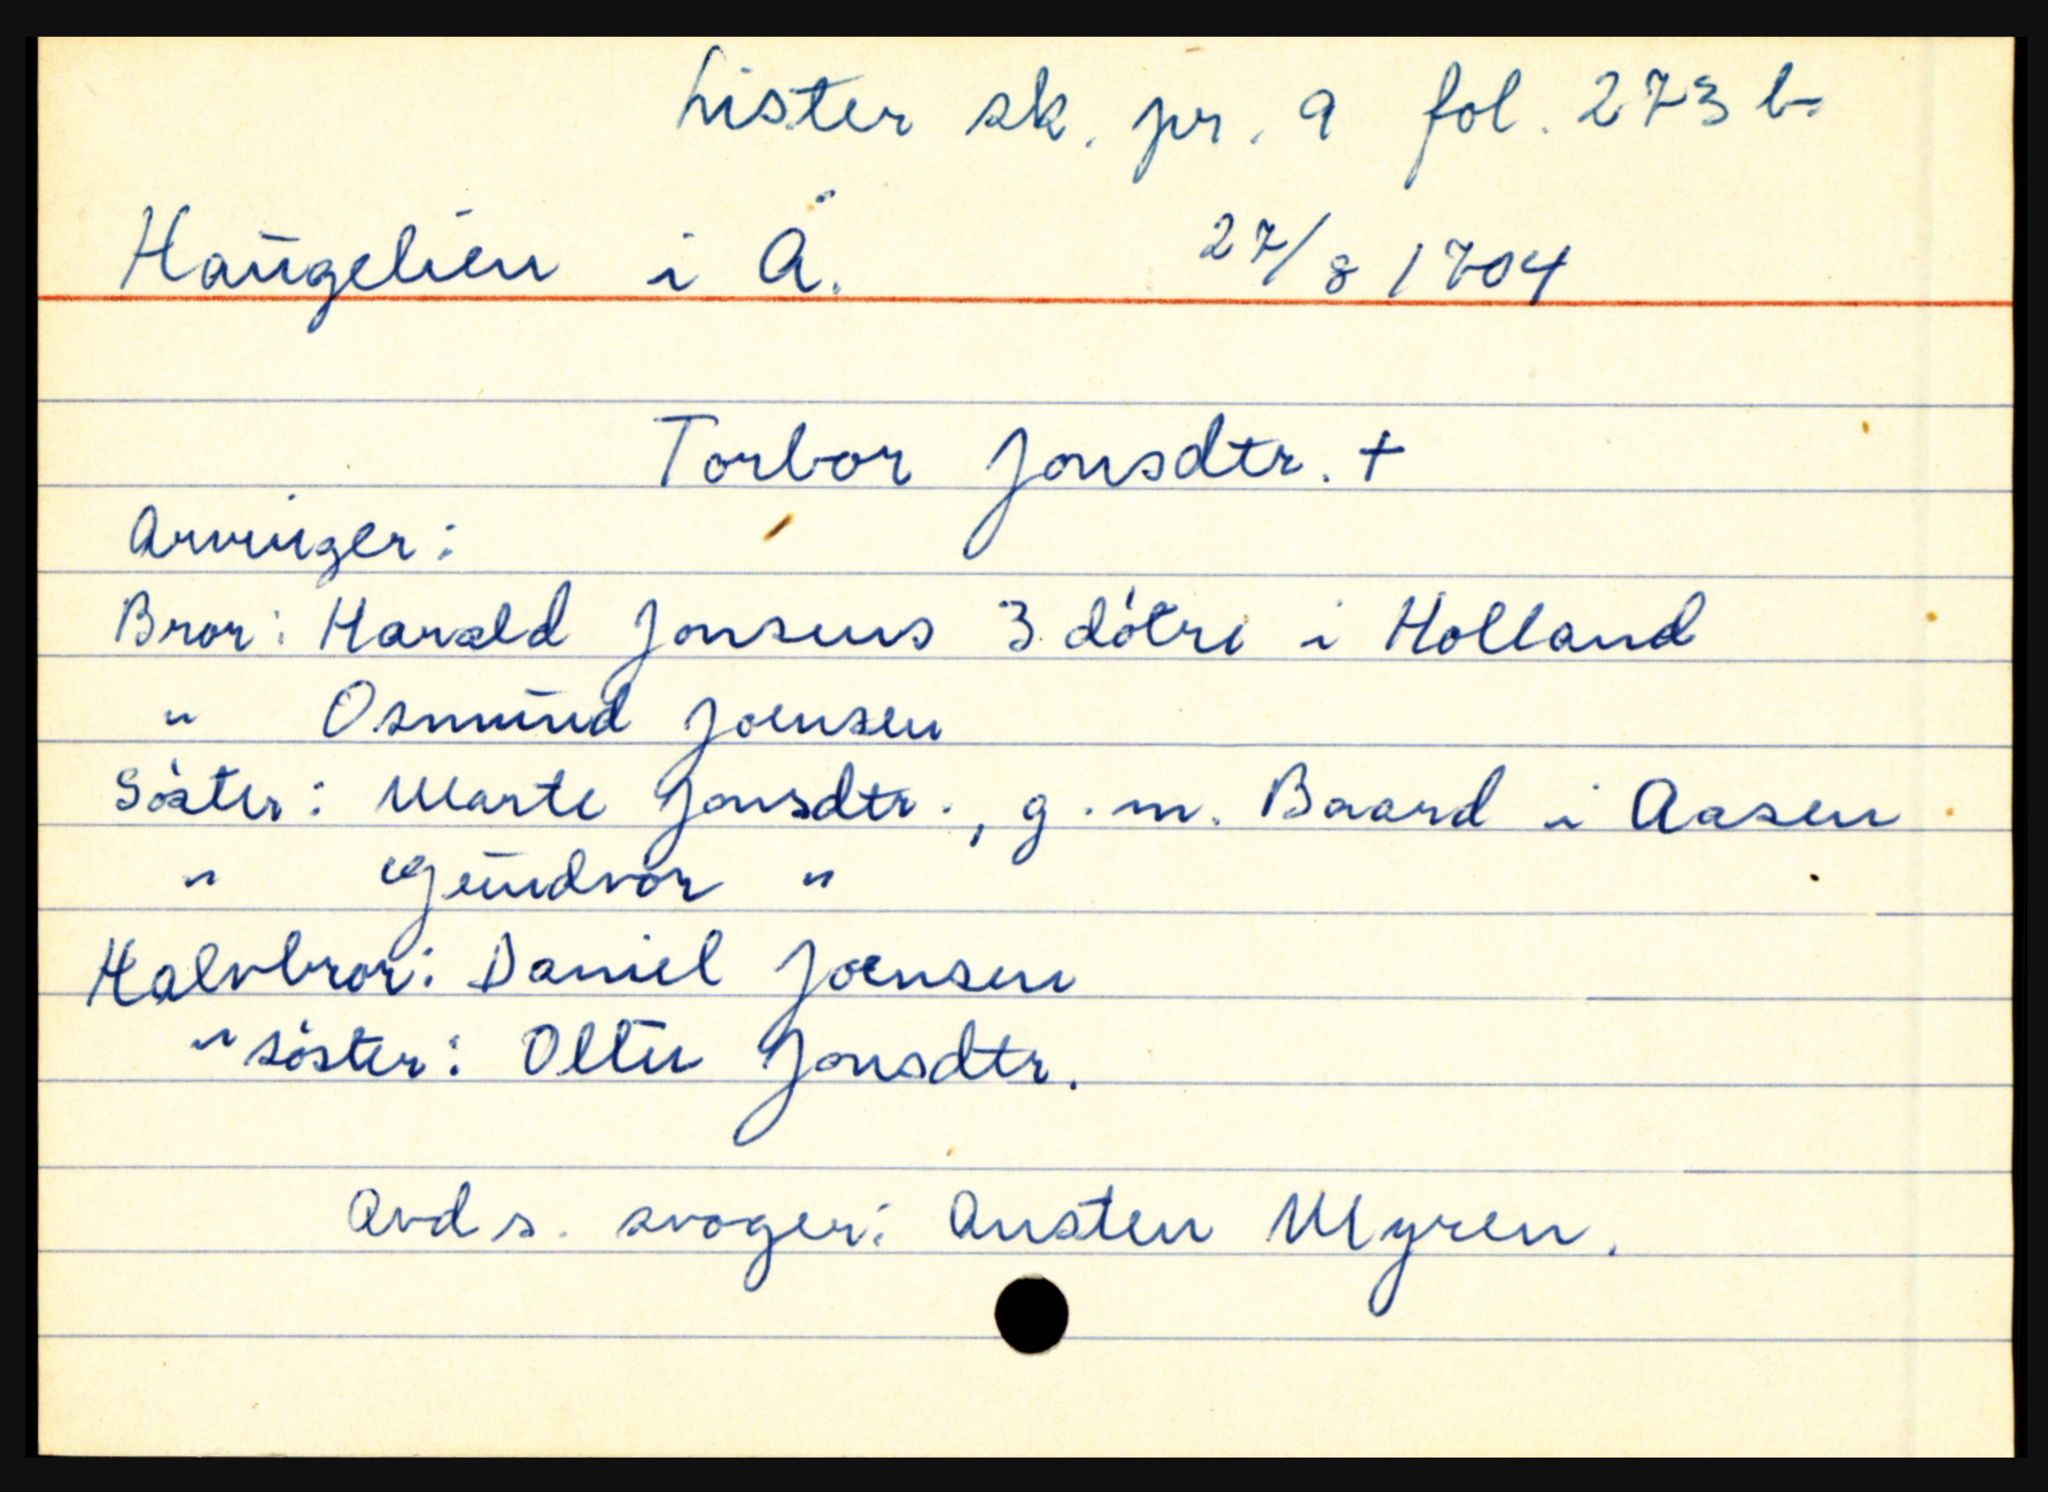 Lister sk. pr. 9 fol. 273 b.
Haugelien i Å. 27/8 1704
Torbor Jonsdtr. +
Arvinger:
Bror: Harald Jonsens 3 dötre i Holland
" Osmund Joensen
Söster: Marte Jonsdtr., g.m. Baard i Aasen
" Gundvor "
Halvbror: Daniel Joensen
" söster: Olltu Jonsdtr.
Avd s. svoger: Austen Myren.